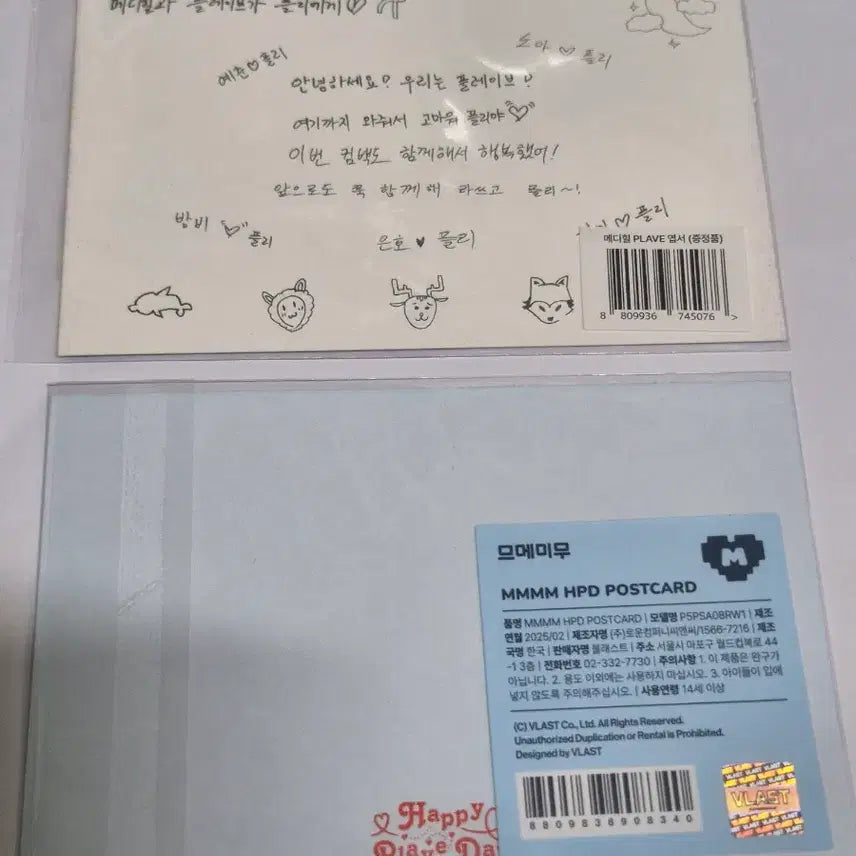 메디힐과 플레이브가 플리에게♡
예준♡플리
노아 ♡ 플리
안녕하세요? 우리는 플레이브!
여기까지 와줘서 고마워 플리야♡
이번 컴백도 함께해서 행복했어!
앞으로도 쭉 함께해 라뷰고 플리~!
밤비 ♡ 플리
은호 ♥ 플리
♡ 플리
메디힐 PLAVE 엽서 (증정품)
8 809936 745076 >
므메미무
M
MMMM HPD POSTCARD
품명 MMMM HPD POSTCARD | 모델명 P5PSA08RW1 | 제조
연월 2025/02 | 제조자명 (주)로운컴퍼니씨앤씨/1566-7216 | 제조
국명 한국 | 판매자명 블래스트 | 주소 서울시 마포구 월드컵북로 44
-1 3층 | 전화번호 02-332-7730 | 주의사항 1. 이 제품은 완구가
아닙니다. 2. 용도 이외에는 사용하지 마십시오. 3. 아이들이 입에
넣지 않도록 주의해주십시오. | 사용연령 14세 이상
(C) VLAST Co., Ltd. All Rights Reserved.
Unauthorized Duplication or Rental is Prohibited.
Designed by VLAST
8809836908340
VLAST
Happy
Plave Da